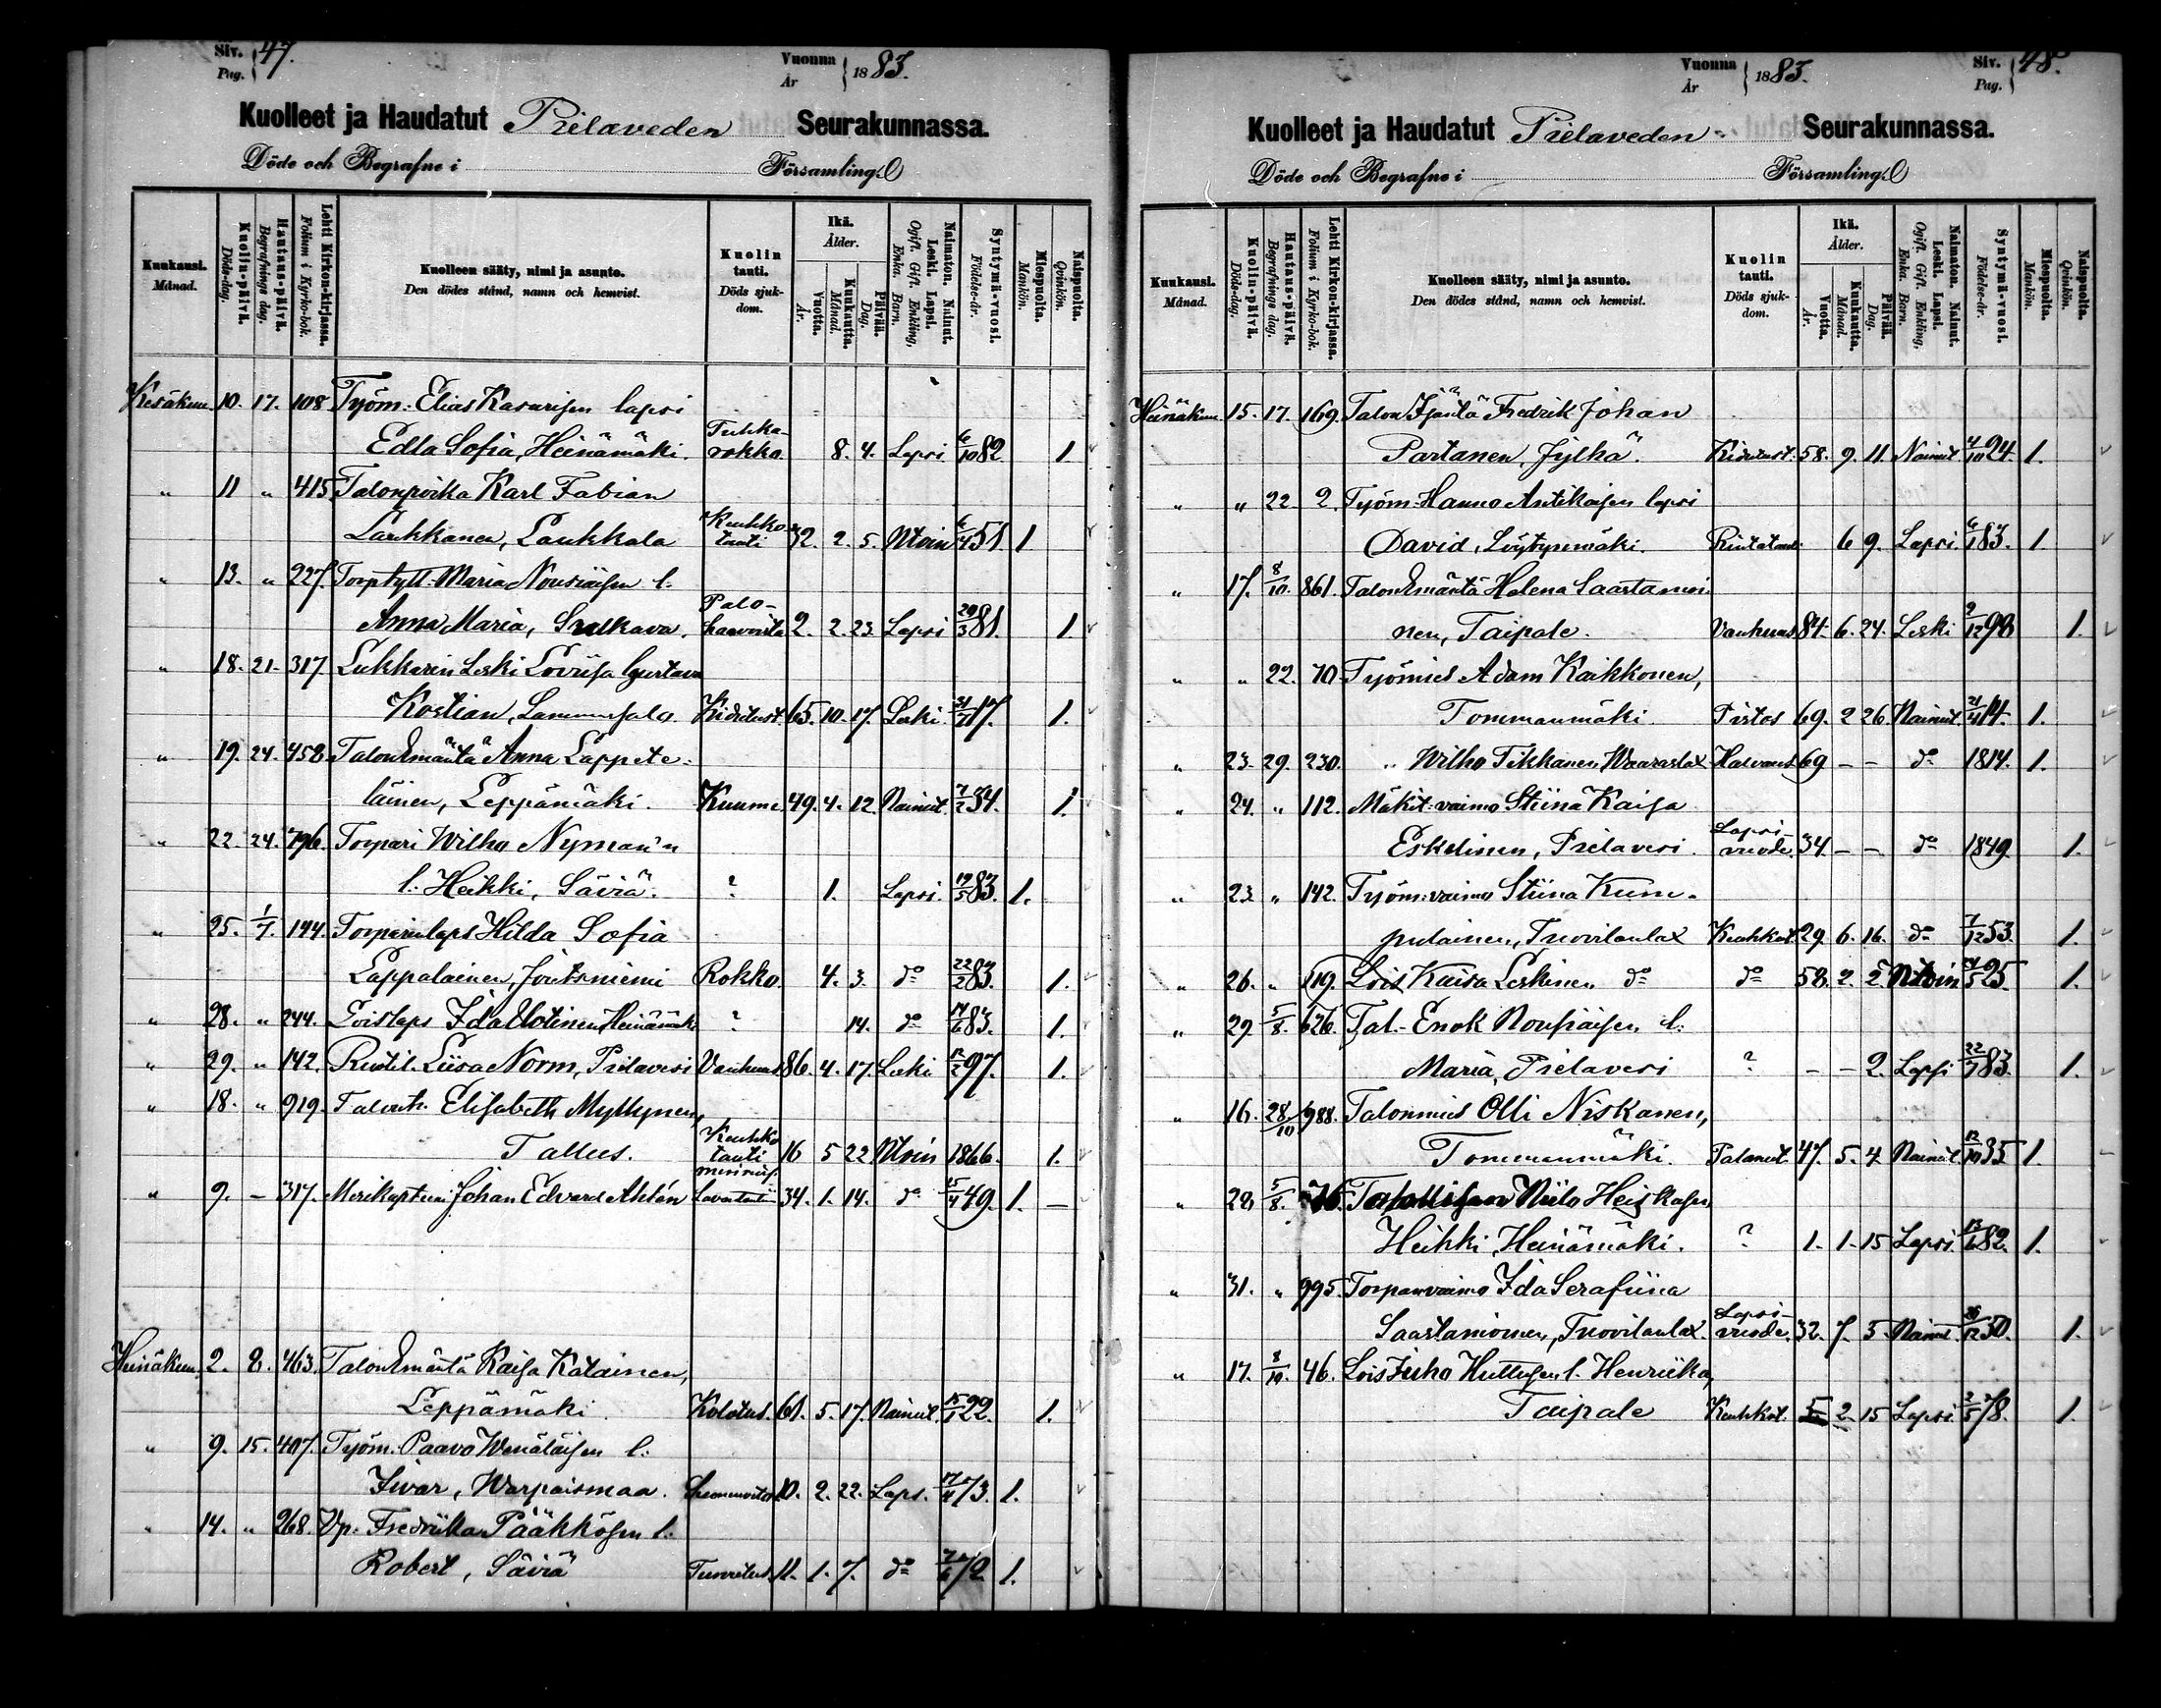 Siv. Pag. 47.
Vuonna År 1883.
Kuolleet ja Haudatut Pielaveden Seurakunnassa.
Döde och Begrafne i Församling.
Kuukausi. Månad.
Kuolin-päivä. Döds-dag.
Hautaus-päivä. Begrafnings dag.
Lehti Kirkon-kirjassa. Folium i Kyrko-bok.
Kuolleen sääty, nimi ja asunto. Den dödes stånd, namn och hemvist.
Kuolin tauti. Döds sjukdom.
Ikä. Ålder.
Vuotta. År.
Kuukautta. Månad.
Päivää. Dag.
Naimaton. Nainut. Leski. Lapsi. Ogift. Gift. Enkling, Enka. Barn.
Syntymä-vuosi. Födelse-år.
Miespuolta. Mankön.
Naispuolta. Qvinkön.
Kesäkuu. 10. 17. 108 Työm. Elias Kasurisen lapsi
Edla Sofia, Heinämäki. Tuhka-rokko. 8. 4. Lapsi 6/10 82 1.
" 11 " 415 Talonpoika Karl Fabian
Laukkanen, Laukkala Keuhkotauti 32. 2. 5. Ntoin 6/4 51. 1
" 13. " 227. Torptytt. Maria Nousiaisen l.
Anna Maria, Sulkava. Palohaavoista 2. 2. 23. Lapsi 20/3 81. 1
" 18. 21. 317. Lukkarin Leski Lovisa Gustava
Kostian, Lammassalo Kidutust. 65. 10. 17. Leski 17. 1.
" 19. 24. 458. Talon Emäntä Anna Lappete-
läinen, Leppämäki. Kuume 49. 4. 12. Nainut. 7/2 34. 1.
" 22. 24. 796. Torpari Wilho Nyman'n
l. Heikki, Säviä. ? 1. Lapsi. 19/5 83. 1.
" 25. 1/7. 194. Torparinlaps Hilda Sofia
Lappalainen, Joutsniemi Rokko. 4. 3. do 22/2 83. 1.
" 28. " 244. Loislaps Ida Utinen, Heinämäki ? 14. do 14/6 83. 1.
" 29. " 142. Ruotil. Liisa Norm, Pielavesi Vanhuus 86. 4. 17. Leski 12/2 97. 1.
" 18. " 919. Talontr. Elisabeth Myllynen,
Tallus. Keuhkotauti 16 5 22 Ntoin 1866. 1.
" 9. – 317. Merikapteeni Johan Edvard Ahlén Lavantauti 34. 1. 14. do 15/4 49. 1. –
Heinäkuu. 2. 8. 463. Talon Emäntä Kaisa Katainen,
Leppämäki. Kolotus. 61. 5. 17. Nainut. 15/1 22. 1.
" 9. 15. 407. Työm. Paavo Wenäläisen l.
Iivar, Warpaismaa. 10. 2. 22. Laps. 17/4 73. 1.
" 14. " 268. Vp. Fredriikka Pääkkösen l.
Robert, Säviä 11. 1. 7. do 7/6 72. 1.
Vuonna År 1883.
Siv. Pag. 48.
Kuolleet ja Haudatut Pielaveden Seurakunnassa.
Döde och Begrafne i Församling.
Kuukausi. Månad.
Kuolin-päivä. Döds-dag.
Hautaus-päivä. Begrafnings dag.
Lehti Kirkon-kirjassa. Folium i Kyrko-bok.
Kuolleen sääty, nimi ja asunto. Den dödes stånd, namn och hemvist.
Kuolin tauti. Döds sjukdom.
Ikä. Ålder.
Vuotta. År.
Kuukautta. Månad.
Päivää. Dag.
Naimaton. Nainut. Leski. Lapsi. Ogift. Gift. Enkling, Enka. Barn.
Syntymä-vuosi. Födelse-år.
Miespuolta. Mankön.
Naispuolta. Qvinkön.
Heinäkuu. 15. 17. 169. Talon Isäntä Fredrik Johan
Partanen, Jylhä. Kidutust. 58. 9. 11. Nainut 4/10 24. 1.
" " 22. 2. Työm. Hannu Antikaisen lapsi
David, Löytynmäki. Rintataut. 6 9. Lapsi 6/1 83. 1.
" 17. 8/10. 861. Talon Emäntä Helena Saastamoi-
nen, Taipale. Vanhuus 84. 6. 24. Leski 9/12 98 1.
" " 22. 70. Työmies Adam Kaikkonen,
Tommanmäki. Pistos 69. 2 26. Nainut. 21/4 14. 1.
" 23. 29. 230. " Wilho Tikkanen, Waaraslax Halvaus 69 – – do 1814. 1.
" 24. " 112. Mäkit. vaimo Stiina Kaisa
Eskelinen, Pielavesi. Lapsi-vuode. 34. – – do 1849. 1.
" 23. " 142. Työm. vaimo Stiina Kum-
pulainen, Tuovilanlax Keuhkot. 29. 6. 16. do 7/12 53. 1.
" 26. " 119. Lois Kaisa Leskinen do do 58. 2. 2. Ntoin 24/5 25. 1.
" 29. 5/8. 626. Tal. Enok Nousiaisen l.
Maria, Pielavesi ? – – 2. Lapsi 22/7 83. 1.
" 16. 28/10 988. Talonmies Olli Niskanen,
Tommanmäki. Palanut. 47. 5. 4. Nainut. 12/10 35 1.
" 28. 5/8. 76. Niilo Heiskasen
Heikki, Heinämäki. ? 1. 1. 15 Lapsi. 13/6 82. 1.
" 31. " 995. Torparivaimo Ida Serafiina
Saastamoinen, Tuovilanlax. Lapsi-vuode. 32. 7. 5. Nainut. 26/12 50. 1.
" 17. 8/10. 46. Lois Juho Huttusen l. Henriika,
Taipale Keuhkot. 5 2 15 Lapsi. 2/5 78. 1.